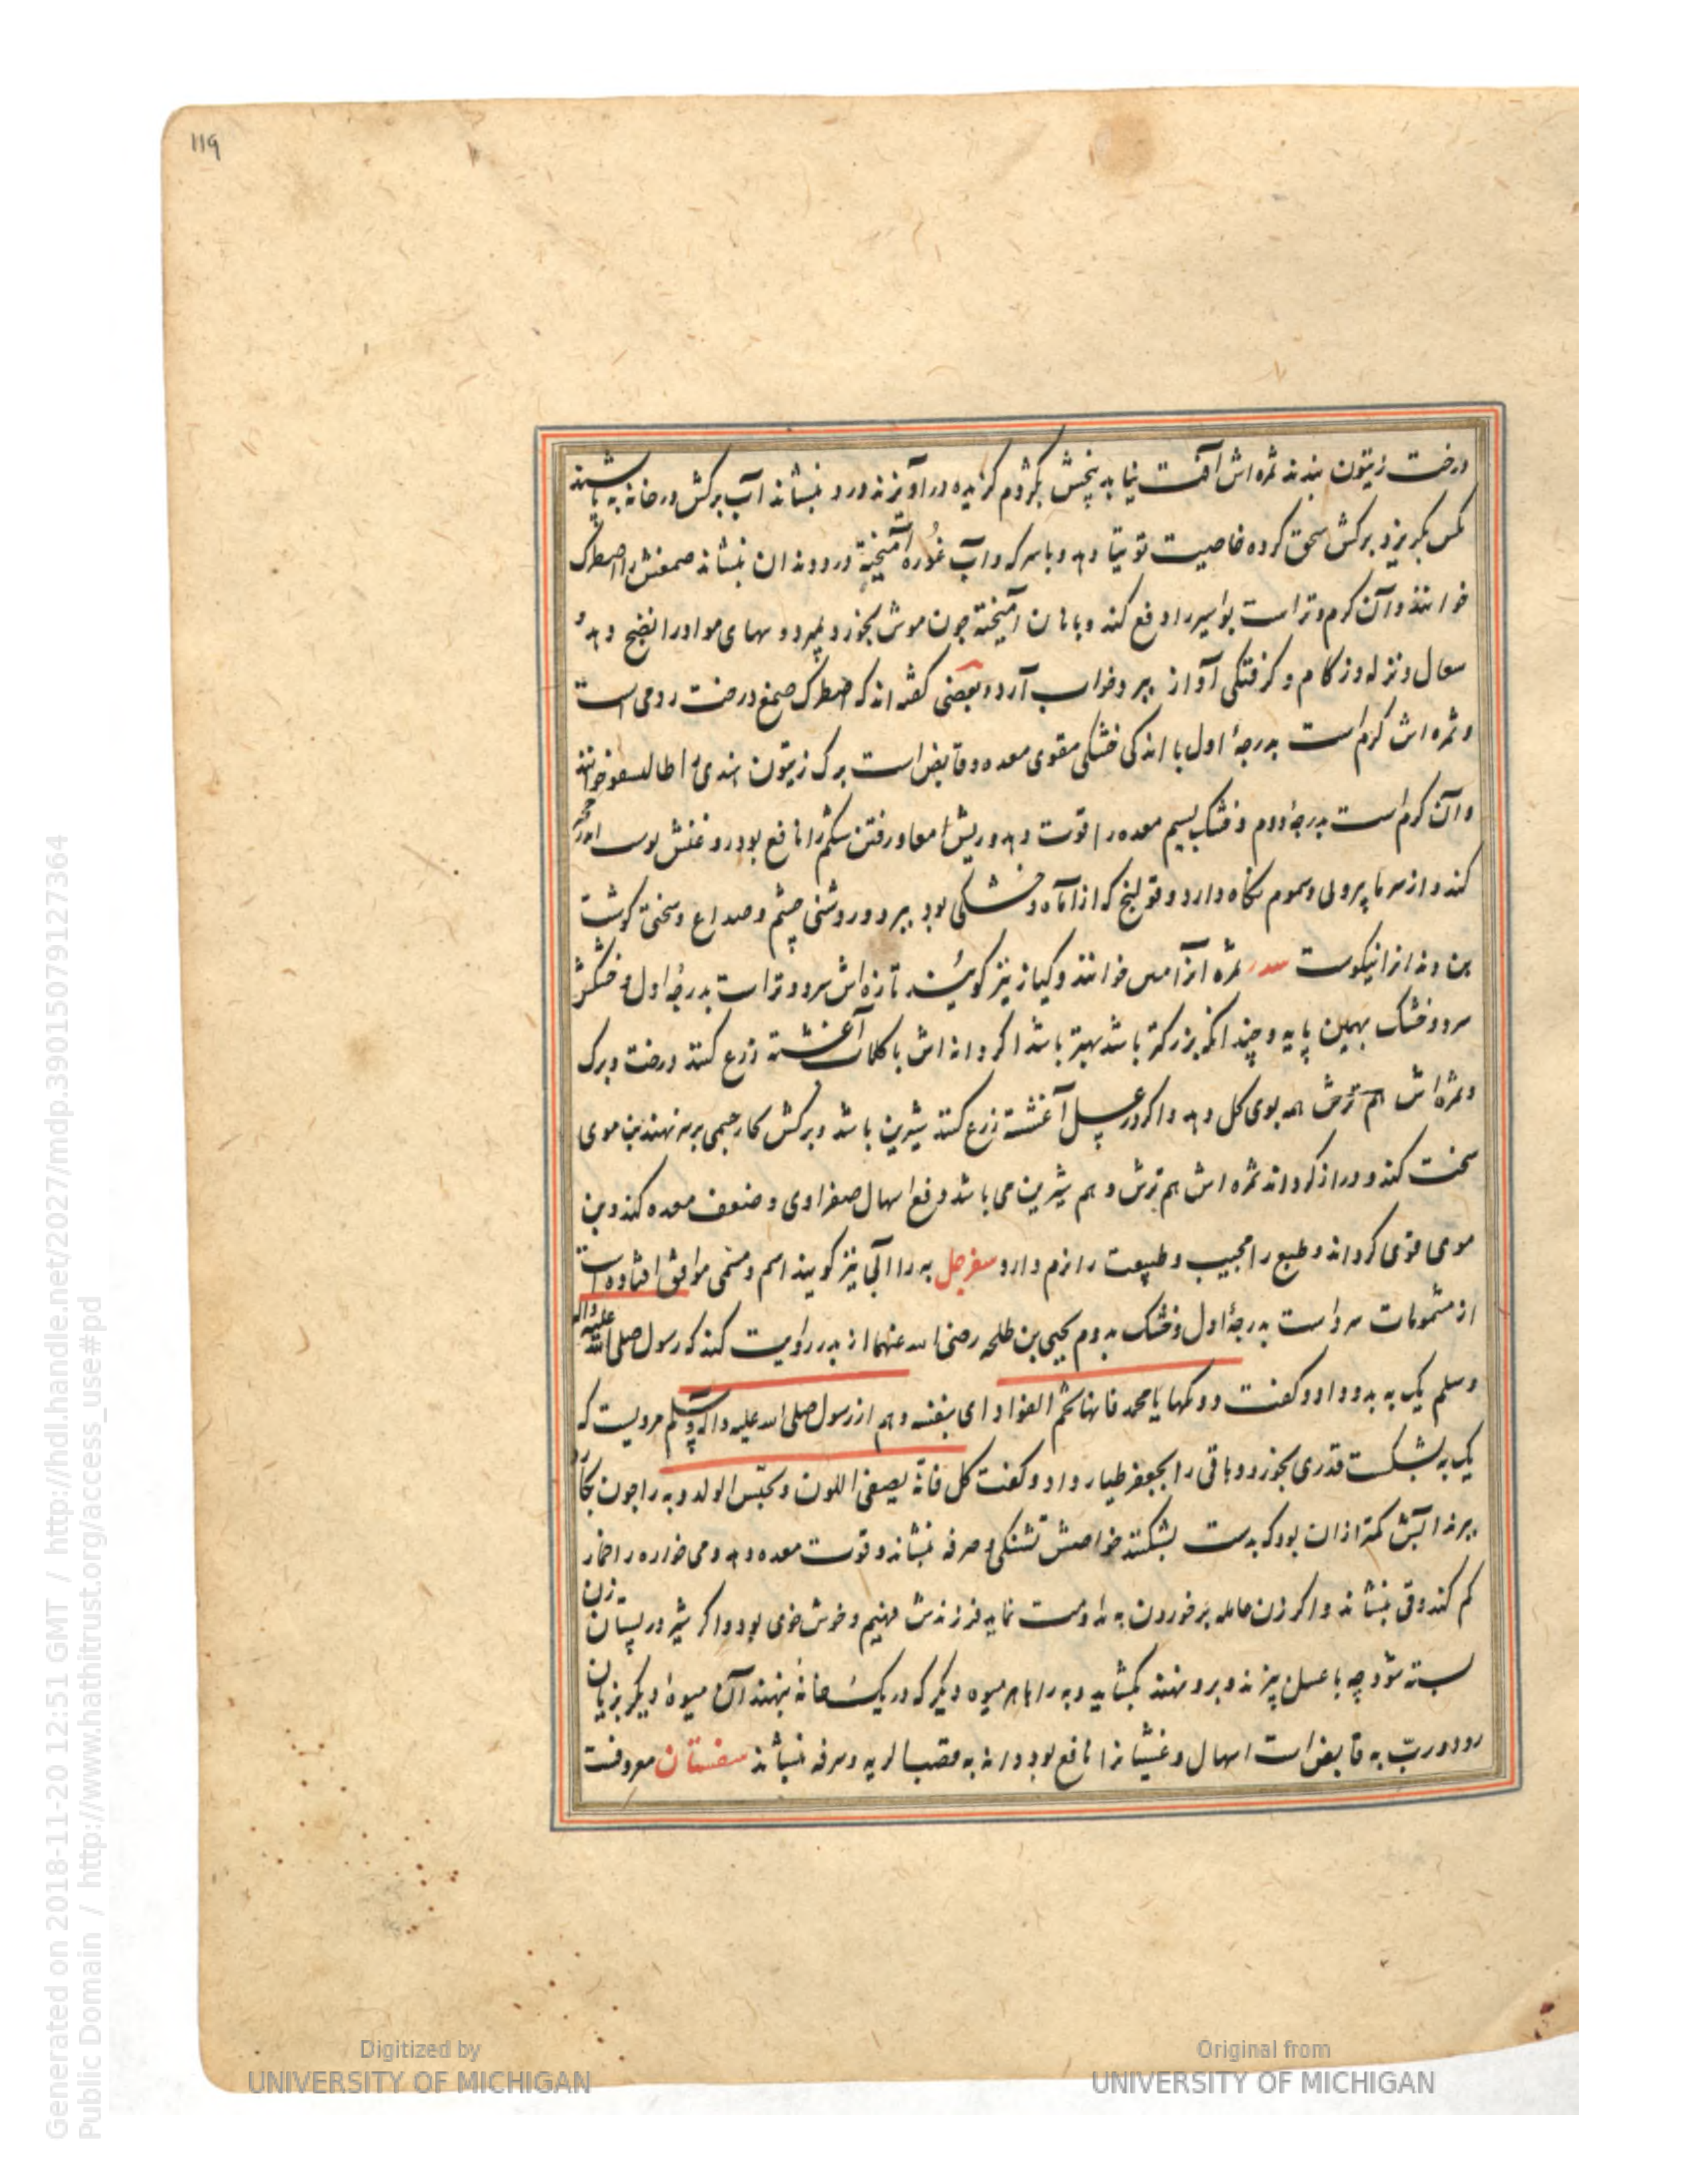 119
درخت زیتون بندند ثمره اش آفت نیابد بیخش بکژدم کزیده درآویزند درد بنشاند آب برکش در خانه به پاشند
مکس بکریزد برکش سحق کرده خاصیت توتیا دهد و با سرکه و آب غوره آمیخته درد دندان بنشاند صمغش را اصطرک
خوانند و آن کرم و تر است بواسیر را دفع کند و با نان آمیخته چون موش بخورد بمیرد و سهای مواد را نضج دهد و
سعال و نزله و زکام و کرفتکی آواز ببرد و خواب آرد و بعضی کفته اند که اصطرک صمغ درخت رومی است
و ثمره اش کرم است بدرجهٔ اول با اندکی خشکی مقوی معده و قابض است برک زیتون هندی را خوانند
و آن کرم است بدرجهٔ دوم و خشک بسیم معده را قوت دهد و ریش امعا و رفتن شکم را نافع بود روغنش
کند و از سرما بیرونی و سموم نکاه دارد و قولنج که از آماه و خشکی بود ببرد و روشنی چشم و صداع و سختی کوشت
بن دندانرا نیکوست سدر ثمره آنرا خوانند و کیاز نیز کویند تازه اش سرد و تر است بدرجهٔ اول و خشکش
سرد و خشک بهمین پایه و چندانکه بزرکتر باشد بهتر باشد اکر دانه اش با کلاب آغشته زرع کنند درخت و برک
و ثمره اش هم ترش همه بوی کل دهد و اکر در عسل آغشته زرع کنند شیرین باشد و برکش کارجیمی بر سر نهند بن موی
سخت کند و دراز کرداند ثمره اش هم ترش و هم شیرین می باشد دفع اسهال صفراوی و ضعف معده کند و بن
موی قوی کرداند و طبع را مجیب و طبیعت را نرم دارد سفرجل به را آبی نیز کویند اسم و مسمی موافق افتاده است
از مشمومات سرد است بدرجهٔ اول و خشک بدوم یحیی بن طلحه رضی الله عنهما از پدر روایت کند که رسول صلی الله علیه واله
و سلم یک به بدو داد و کفت دونکها یا محمد فانها تجم الفواد ای بنفسه و هم از رسول صلی الله علیه واله وسلم مرویست که
یک به بشکست قدری بخورد و باقی را بجعفر طیار داد و کفت کل فانه یصفی اللون و یحسن الولد و به را چون بکارد
ببرند آبش کمتر از ان بود که بدست بشکنند خواصش تشنکی و سرفه بنشاند و قوت معده دهد و می خواره را خمار
کم کند و قی بنشاند و اکر زن حامله بر خوردن به مداومت نماید فرزندش فهیم و خوش خوی بود و اکر شیر در پستان زن
بسته شود چه با عسل پزند و برو نهند بکشاید و به را با هر میوه دیکر که در یک خانه بنهند آن میوه دیکر بزیان
رود و رب به قابض است اسهال و غشیانرا نافع بود و دانه به قصبه الریه و سرفه بنشاند سفستان معروفست
Generated on 2018-11-20 12:51 GMT / http://hdl.handle.net/2027/mdp.39015079127364
Public Domain / http://www.hathitrust.org/access_use#pd
Digitized by
UNIVERSITY OF MICHIGAN
Original from
UNIVERSITY OF MICHIGAN